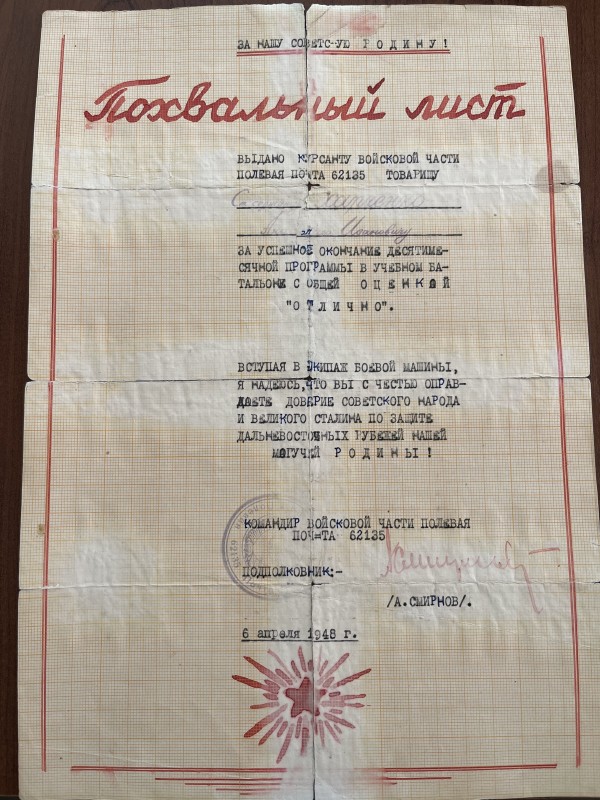 ЗА НАШУ СОВЕТСКУЮ РОДИНУ!
Похвальный лист
ВЫДАНО КУРСАНТУ ВОЙСКОВОЙ ЧАСТИ
ПОЛЕВАЯ ПОЧТА 62135 ТОВАРИЩУ
Ивановичу
ЗА УСПЕШНОЕ ОКОНЧАНИЕ ДЕСЯТИМЕ-
СЯЧНОЙ ПРОГРАММЫ В УЧЕБНОМ БА-
ТАЛЬОНЕ С ОБЩЕЙ ОЦЕНКОЙ
"ОТЛИЧНО".
ВСТУПАЯ В ЭКИПАЖ БОЕВОЙ МАШИНЫ,
Я НАДЕЮСЬ, ЧТО ВЫ С ЧЕСТЬЮ ОПРАВ-
ДАЕТЕ ДОВЕРИЕ СОВЕТСКОГО НАРОДА
И ВЕЛИКОГО СТАЛИНА ПО ЗАЩИТЕ
ДАЛЬНЕВОСТОЧНЫХ РУБЕЖЕЙ НАШЕЙ
МОГУЧЕЙ РОДИНЫ!
КОМАНДИР ВОЙСКОВОЙ ЧАСТИ ПОЛЕВАЯ
ПОЧ=ТА 62135
ПОДПОЛКОВНИК:-
/А.СМИРНОВ/.
6 апреля 1948 г.